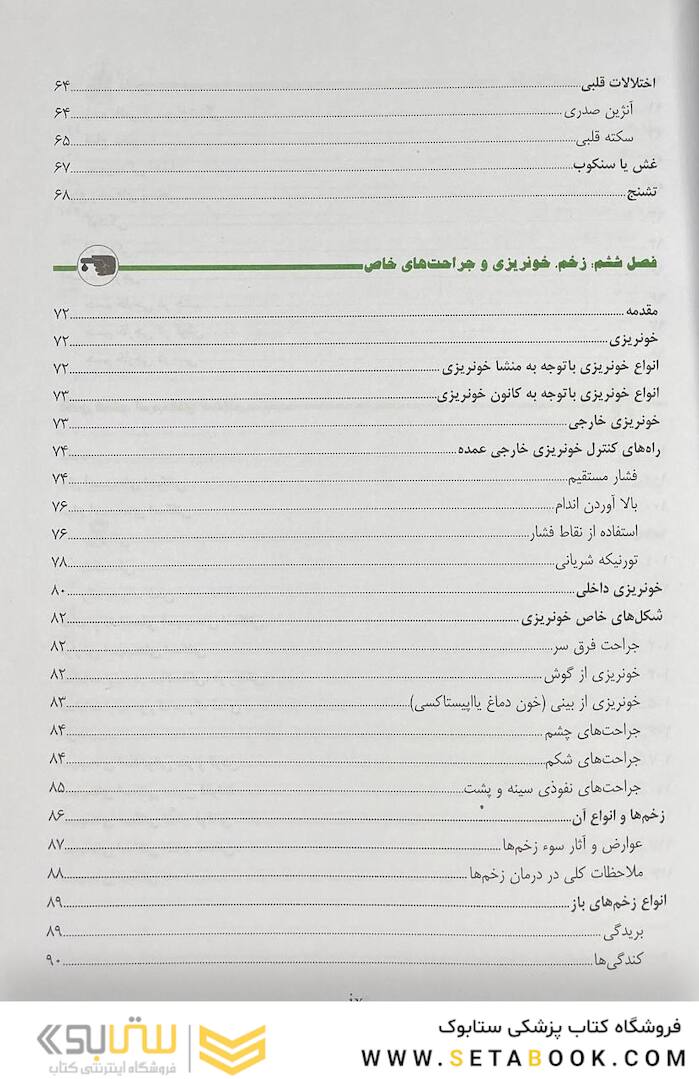 اختلالات قلبی ۶۴
آنژین صدری ۶۴
سکته قلبی ۶۵
غش یا سنکوپ ۶۷
تشنج ۶۸
فصل ششم: زخم، خونریزی و جراحت‌های خاص
مقدمه ۷۲
خونریزی ۷۲
انواع خونریزی باتوجه به منشا خونریزی ۷۲
انواع خونریزی باتوجه به کانون خونریزی ۷۳
خونریزی خارجی ۷۳
راه‌های کنترل خونریزی خارجی عمده ۷۴
فشار مستقیم ۷۴
بالا آوردن اندام ۷۶
استفاده از نقاط فشار ۷۶
تورنیکه شریانی ۷۸
خونریزی داخلی ۸۰
شکل‌های خاص خونریزی ۸۲
جراحت فرق سر ۸۲
خونریزی از گوش ۸۲
خونریزی از بینی (خون دماغ یااپیستاکسی) ۸۳
جراحت‌های چشم ۸۴
جراحت‌های شکم ۸۴
جراحت‌های نفوذی سینه و پشت ۸۵
زخم‌ها و انواع آن ۸۶
عوارض و آثار سوء زخم‌ها ۸۷
ملاحظات کلی در درمان زخم‌ها ۸۸
انواع زخم‌های باز ۸۹
بریدگی ۸۹
کندگی‌ها ۹۰
ix
فروشگاه کتاب پزشکی ستابوک
WWW.SETABOOK.COM
ستابوک
فروشگاه اینترنتی کتاب